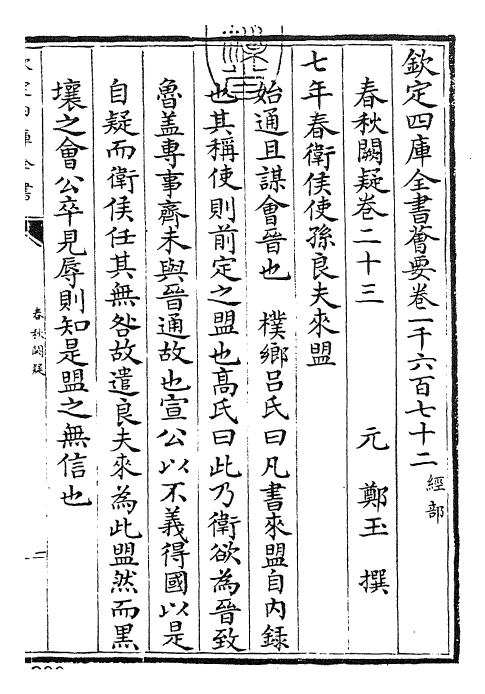 欽定四庫全書薈要卷一千六百七十二 經部
春秋闕疑卷二十三 元 鄭玉 撰
七年春衛侯使孫良夫來盟
始通且謀會晉也 樸鄉呂氏曰凡書來盟自內錄
也其稱使則前定之盟也高氏曰此乃衛欲為晉致
魯盖專事齊未與晉通故也宣公以不義得國以是
自疑而衛侯任其無咎故遣良夫來為此盟然而黒
壤之會公卒見辱則知是盟之無信也
欽定四庫全書
春秋闕疑